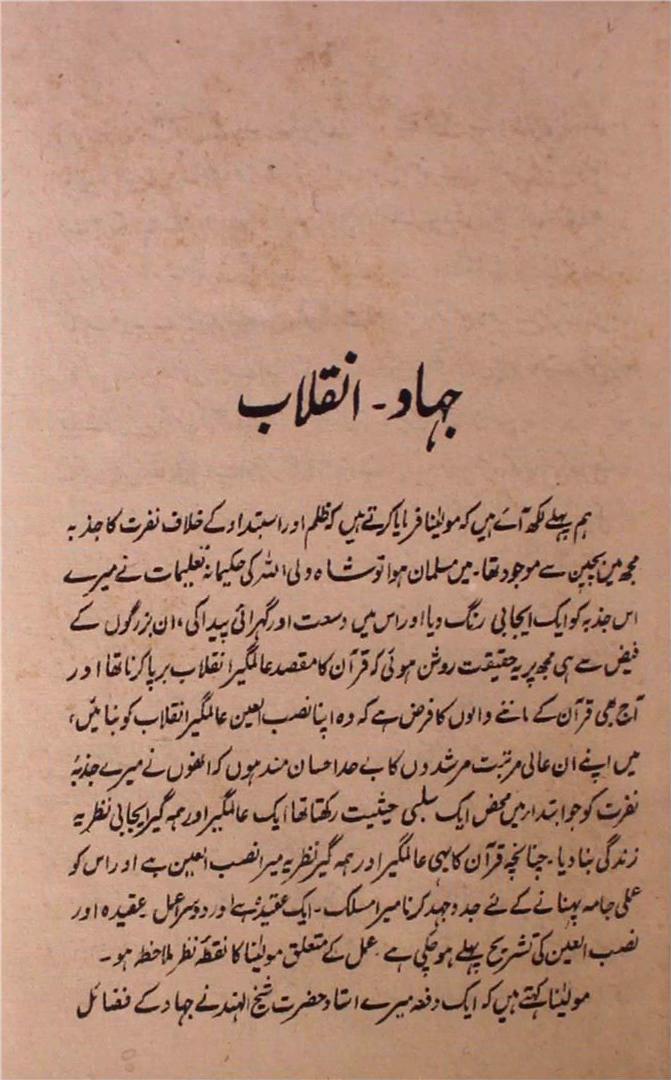 جہاد - انقلاب
ہم پہلے لکھ آئے ہیں کہ مولینا فرمایا کرتے ہیں کہ ظلم اور استبداد کے خلاف نفرت کا جذبہ
مجھ میں بچپن سے موجود تھا۔ میں مسلمان ہوا تو شاہ ولی اللہ کی حکیمانہ تعلیمات نے میرے
اس جذبہ کو ایک ایجابی رنگ دیا اور اس میں وسعت اور گہرائی پیدا کی، ان بزرگوں کے
فیض سے ہی مجھ پر یہ حقیقت روشن ہوئی کہ قرآن کا مقصد عالمگیر انقلاب برپا کرنا تھا اور
آج بھی قرآن کے ماننے والوں کا فرض ہے کہ وہ اپنا نصب العین عالمگیر انقلاب کو بنائیں،
میں اپنے ان عالی مرتبت مرشدوں کا بے حد احسان مند ہوں کہ انھوں نے میرے جذبۂ
نفرت کو جو ابتدار میں محض ایک سلبی حیثیت رکھتا تھا ایک عالمگیر اور ہمہ گیر ایجابی نظریہ
زندگی بنا دیا۔ چنانچہ قرآن کا یہی عالمگیر اور ہمہ گیر نظریہ میرا نصب العین ہے اور اس کو
عملی جامہ پہنانے کے لئے جدوجہد کرنا میرا مسلک۔ ایک عقیدہ ہے اور دوسرا عمل عقیدہ اور
نصب العین کی تشریح پہلے ہو چکی ہے عمل کے متعلق مولینا کا نقطۂ نظر ملاحظہ ہو۔
مولینا کہتے ہیں کہ ایک دفعہ میرے استاد حضرت شیخ الہند نے جہاد کے فضائل